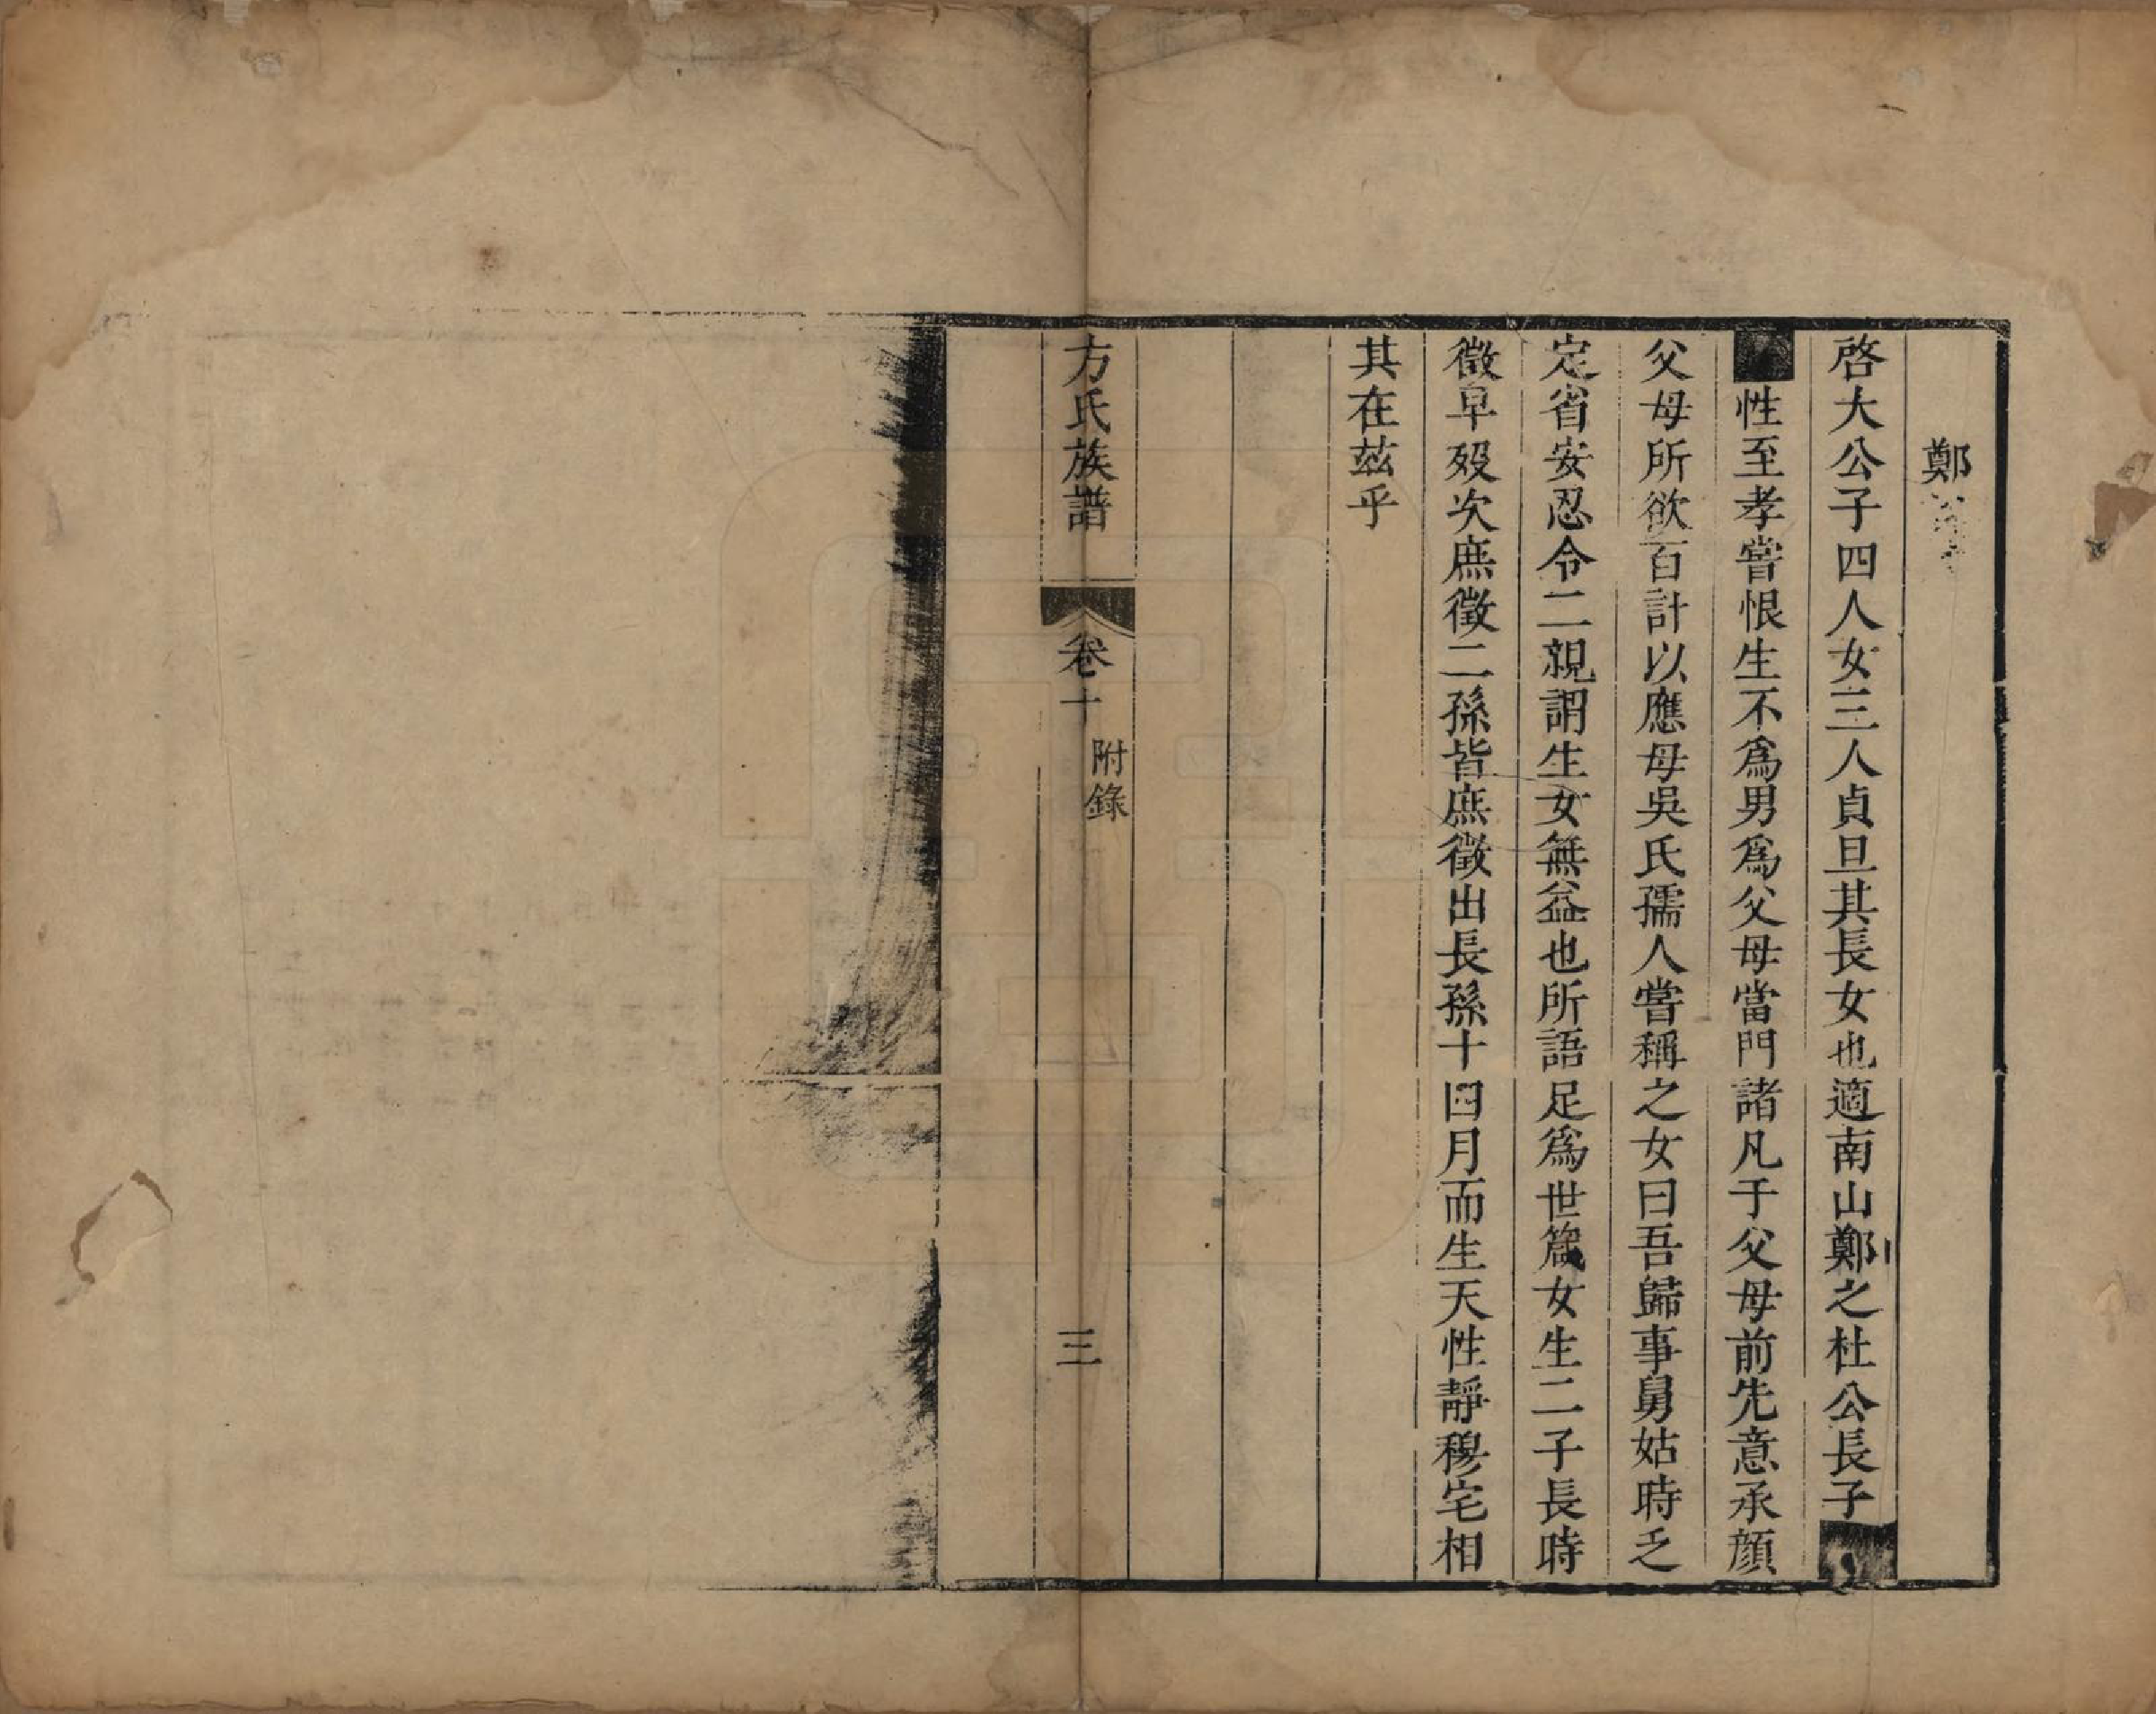 鄭
啓大公子四人女三人貞旦其長女也適南山鄭之杜公長子
性至孝嘗恨生不爲男爲父母當門諸凡于父母前先意承顔
父母所欲百計以應母吳氏孺人嘗稱之女曰吾歸事舅姑時乏
定省安忍令二親謂生女無益也所語足爲世箴女生二子長時
徵早歿次庶徵二孫皆庶徵出長孫十四月而生天性靜穆宅相
其在兹乎
方氏族譜 卷十 附錄 三